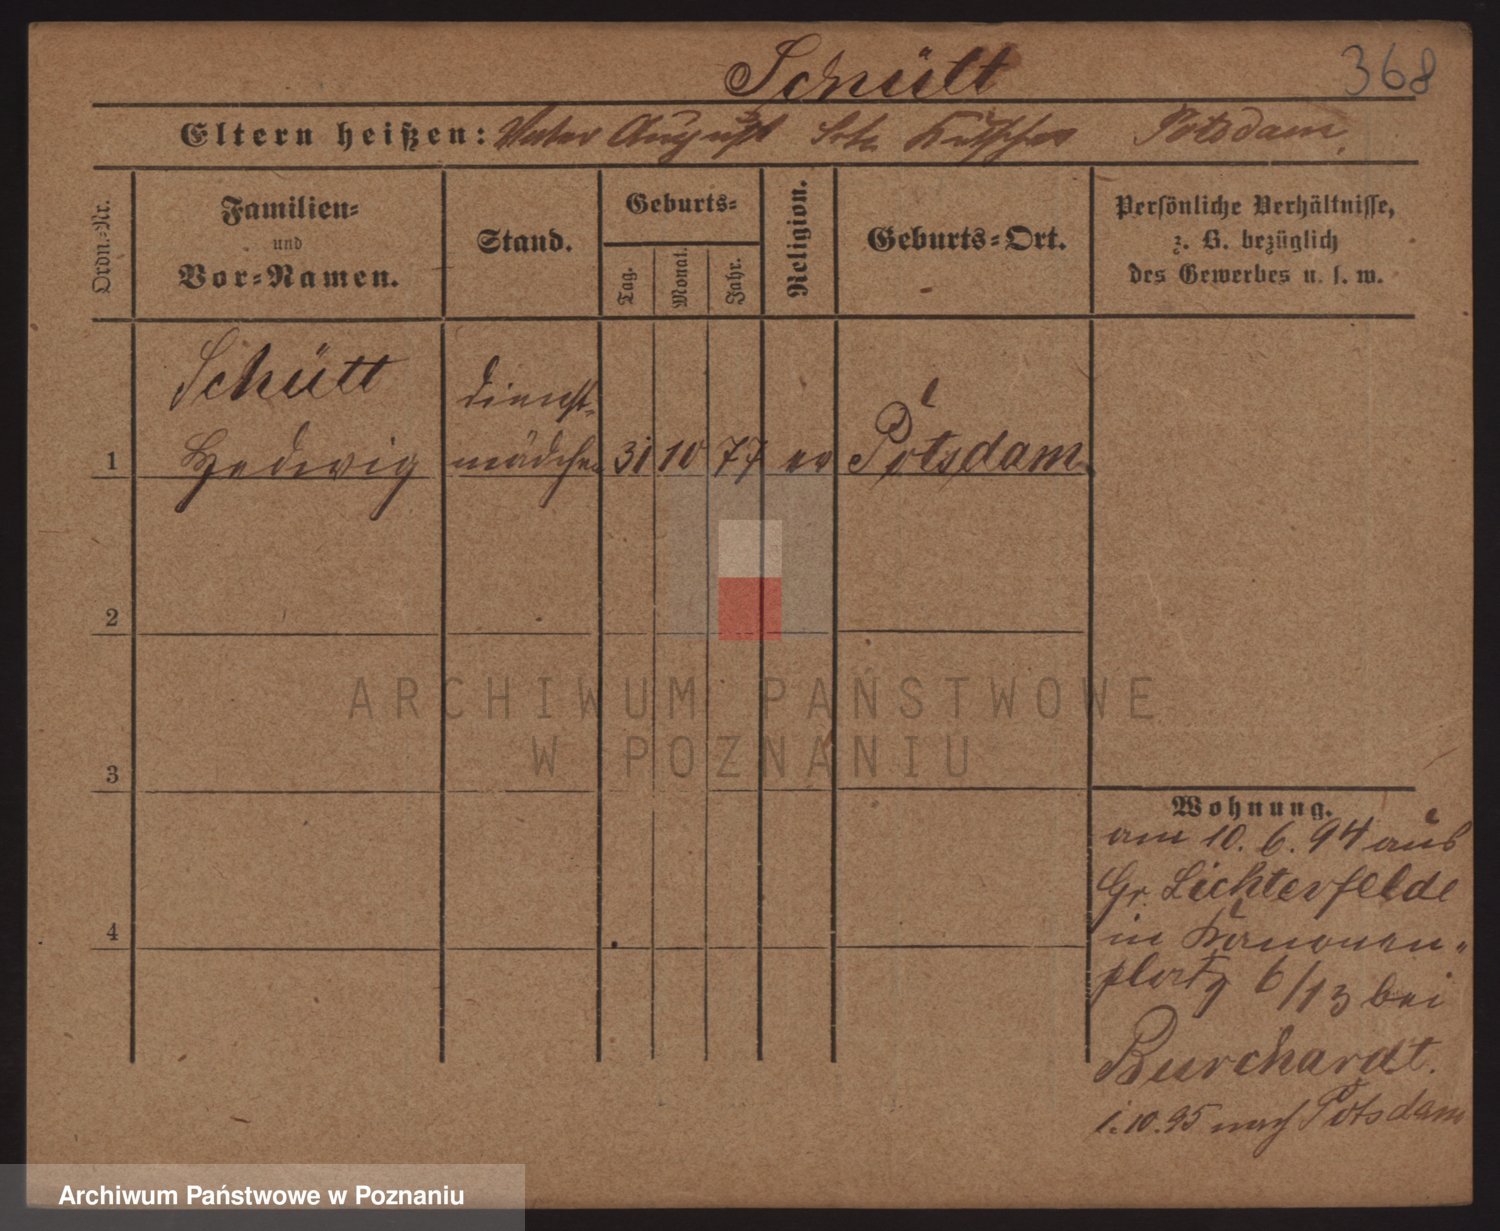 Schütt
368
Eltern heißen: Vater August Potsdam.
Ordn.-Nr.
Familien-
und
Vor-Namen.
Stand.
Geburts-
Tag.
Monat.
Jahr.
Religion.
Geburts-Ort.
Persönliche Verhältnisse,
z. B. bezüglich
des Gewerbes u. s. w.
Schütt
Hedwig
Dienst-
mädchen
1
31
10
77
ev
Potsdam
2
3
4
Wohnung.
am 10. 6. 94 aus
Gr. Lichterfelde
in Kanonen-
platz 6/13 bei
Burchardt.
1.10.95 nach Potsdam
ARCHIWUM PAŃSTWOWE
W POZNANIU
Archiwum Państwowe w Poznaniu